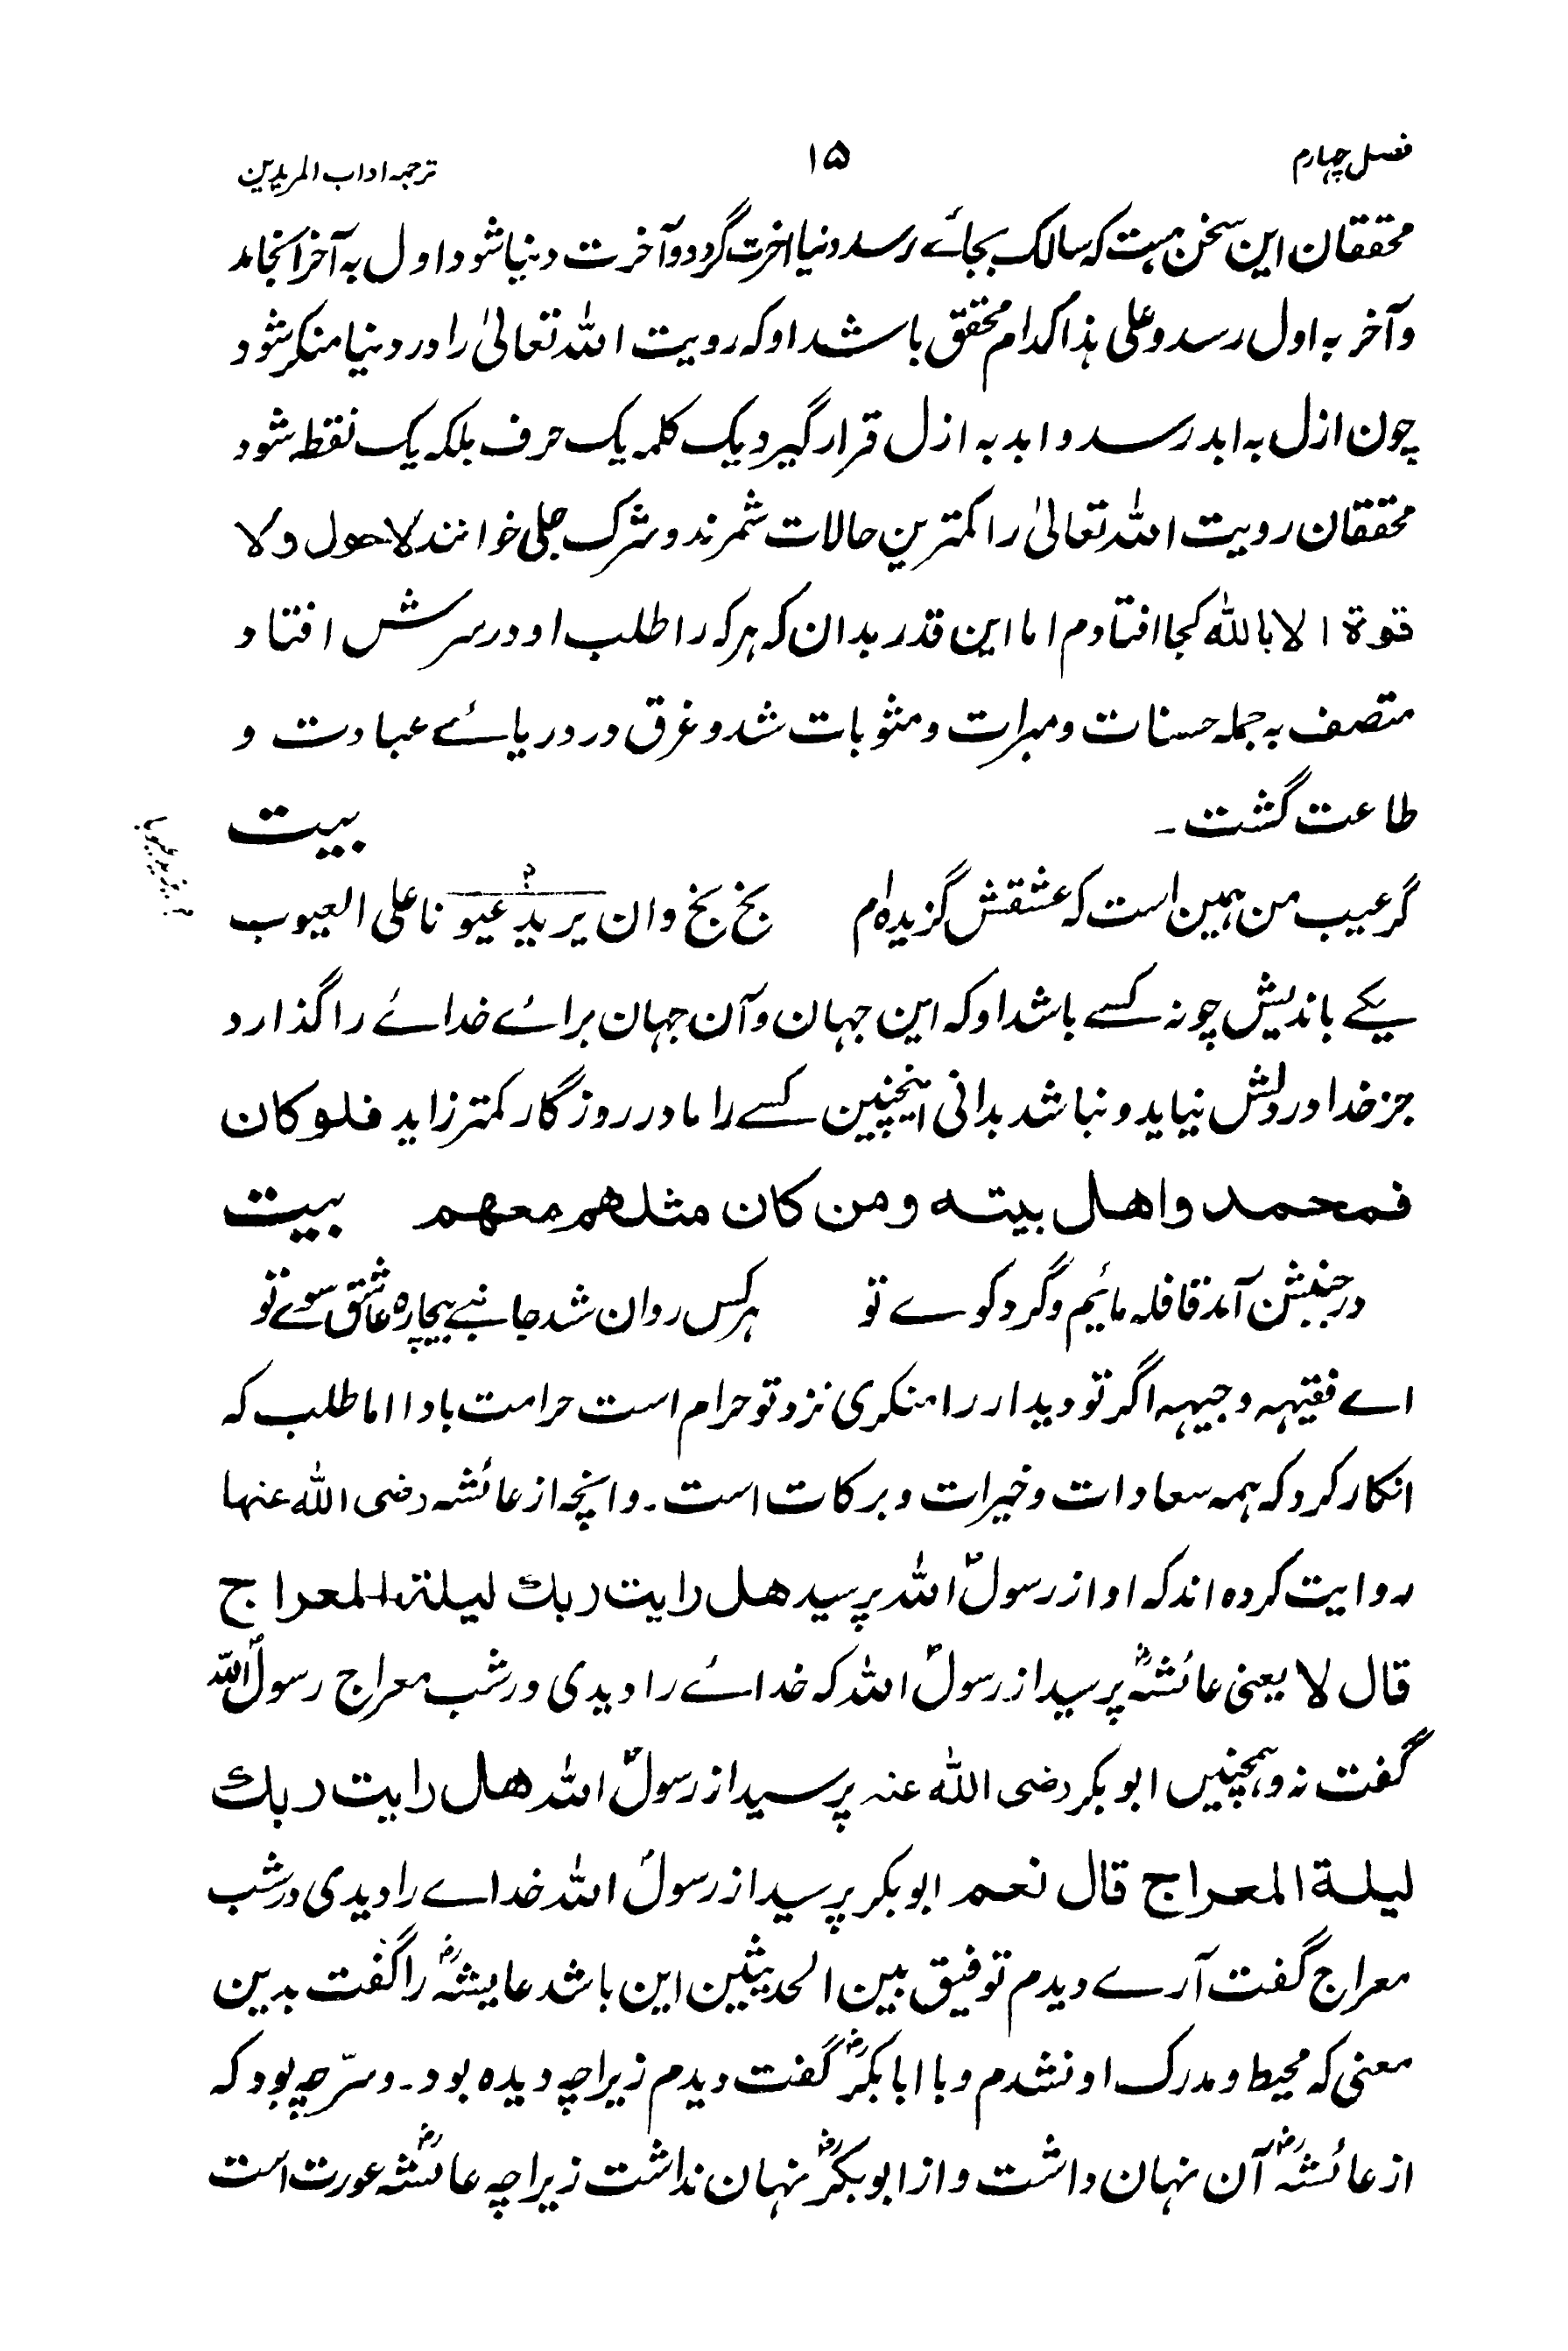 فصل چہارم ۱۵ ترجمہ اداب المریدین
محققان این سخن ہست کہ سالک بجائے رسد دنیا اخرت گردد و آخرت دنیا شود اول بہ آخر انجامد
و آخر بہ اول رسد و علی ہذا کدام محقق باشد او کہ رویت اللہ تعالیٰ را در دنیا منکر شود
چون ازل بہ ابد رسد و ابد بہ ازل قرار گیرد یک کلمہ یک حرف بلکہ یک نقطہ شود
محققان رویت اللہ تعالیٰ را کمترین حالات شمرند و شرک جلی خوانند لاحول ولا
قوۃ الا باللہ کجا افتادم اما این قدر بدان کہ ہر کہ را طلب او در سرش افتاد
متصف بہ جملہ حسنات و مبرات و مثوبات شد و غرق در دریائے عبادت و
طاعت گشت ۔ بیت
گر عیب من ہمین است کہ عشقش گزیدہ ام بخ بخ وان یرید عیوناعلی العیوب
یکے باندیش چونہ کسے باشد او کہ این جہان و آن جہان برائے خدائے را گذارد
جز خدا در دلش نیاید و نباشد بدانی اینچنین کسے را مادر روزگار کمتر زاید فلو کان
فمحمد واهل بیته ومن کان مثلهم معهم بیت
در جنبش آمد قافلہ مائیم و گرد کوے تو ہر کس روان شد جانبے بیچارہ عاشق سوے تو
اے فقیہہ وجیہہ اگر تو دیدار را منکری نزد تو حرام است حرامت بادا اما طلب کہ
انکار کرد کہ ہمہ سعادات و خیرات و برکات است ۔ و انچہ از عائشہ رضی اللہ عنہا
روایت کردہ اند کہ او از رسولؐ اللہ پرسید هل رایت ربك لیلة المعراج
قال لا یعنی عائشہؓ پرسید از رسولؐ اللہ کہ خدائے را دیدی در شب معراج رسولؐ اللہ
گفت نہ و ہمچنیں ابو بکر رضی اللہ عنہ پرسید از رسولؐ اللہ هل رایت ربك
لیلة المعراج قال نعم ابو بکر پرسید از رسولؐ اللہ خداے را دیدی در شب
معراج گفت آرے دیدم توفیق بین الحدیثین این باشد عایشہؓ را گفت بدین
معنی کہ محیط و مدرک او نشدم و با ابابکرؓ گفت دیدم زیراچہ دیدہ بود ۔ و سرّ چہ بود کہ
از عائشہؓ آن نہان داشت و از ابوبکرؓ نہان نداشت زیراچہ عائشہؓ عورت است